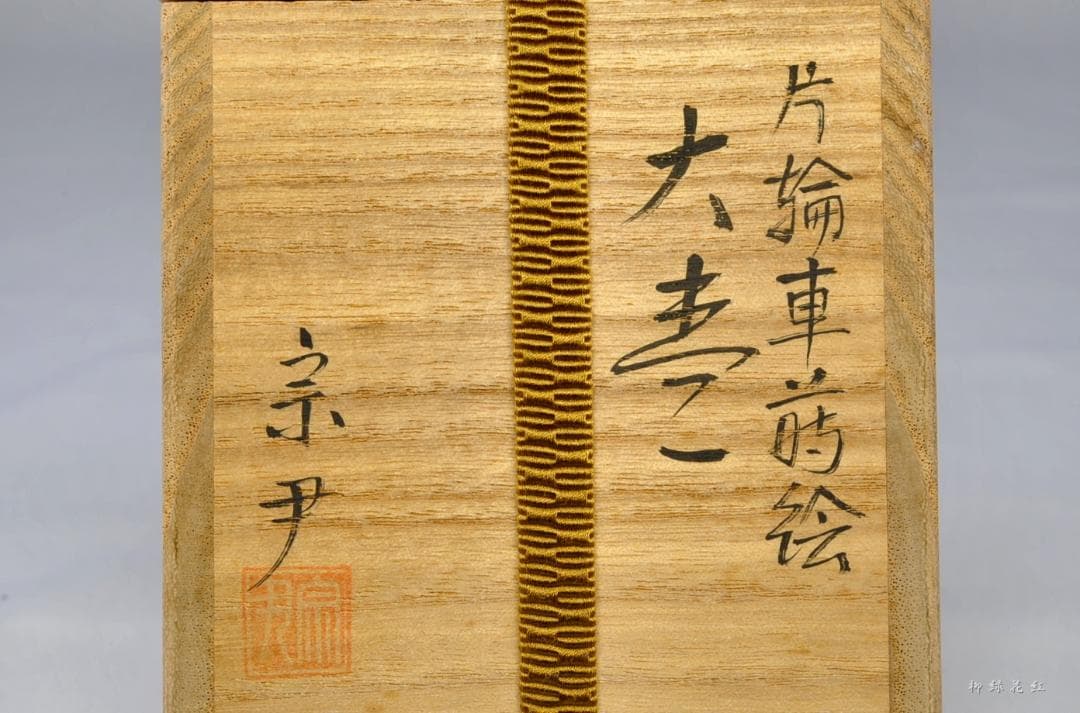 片輪車蒔絵
大棗
宗尹
宗尹
柳緑花紅